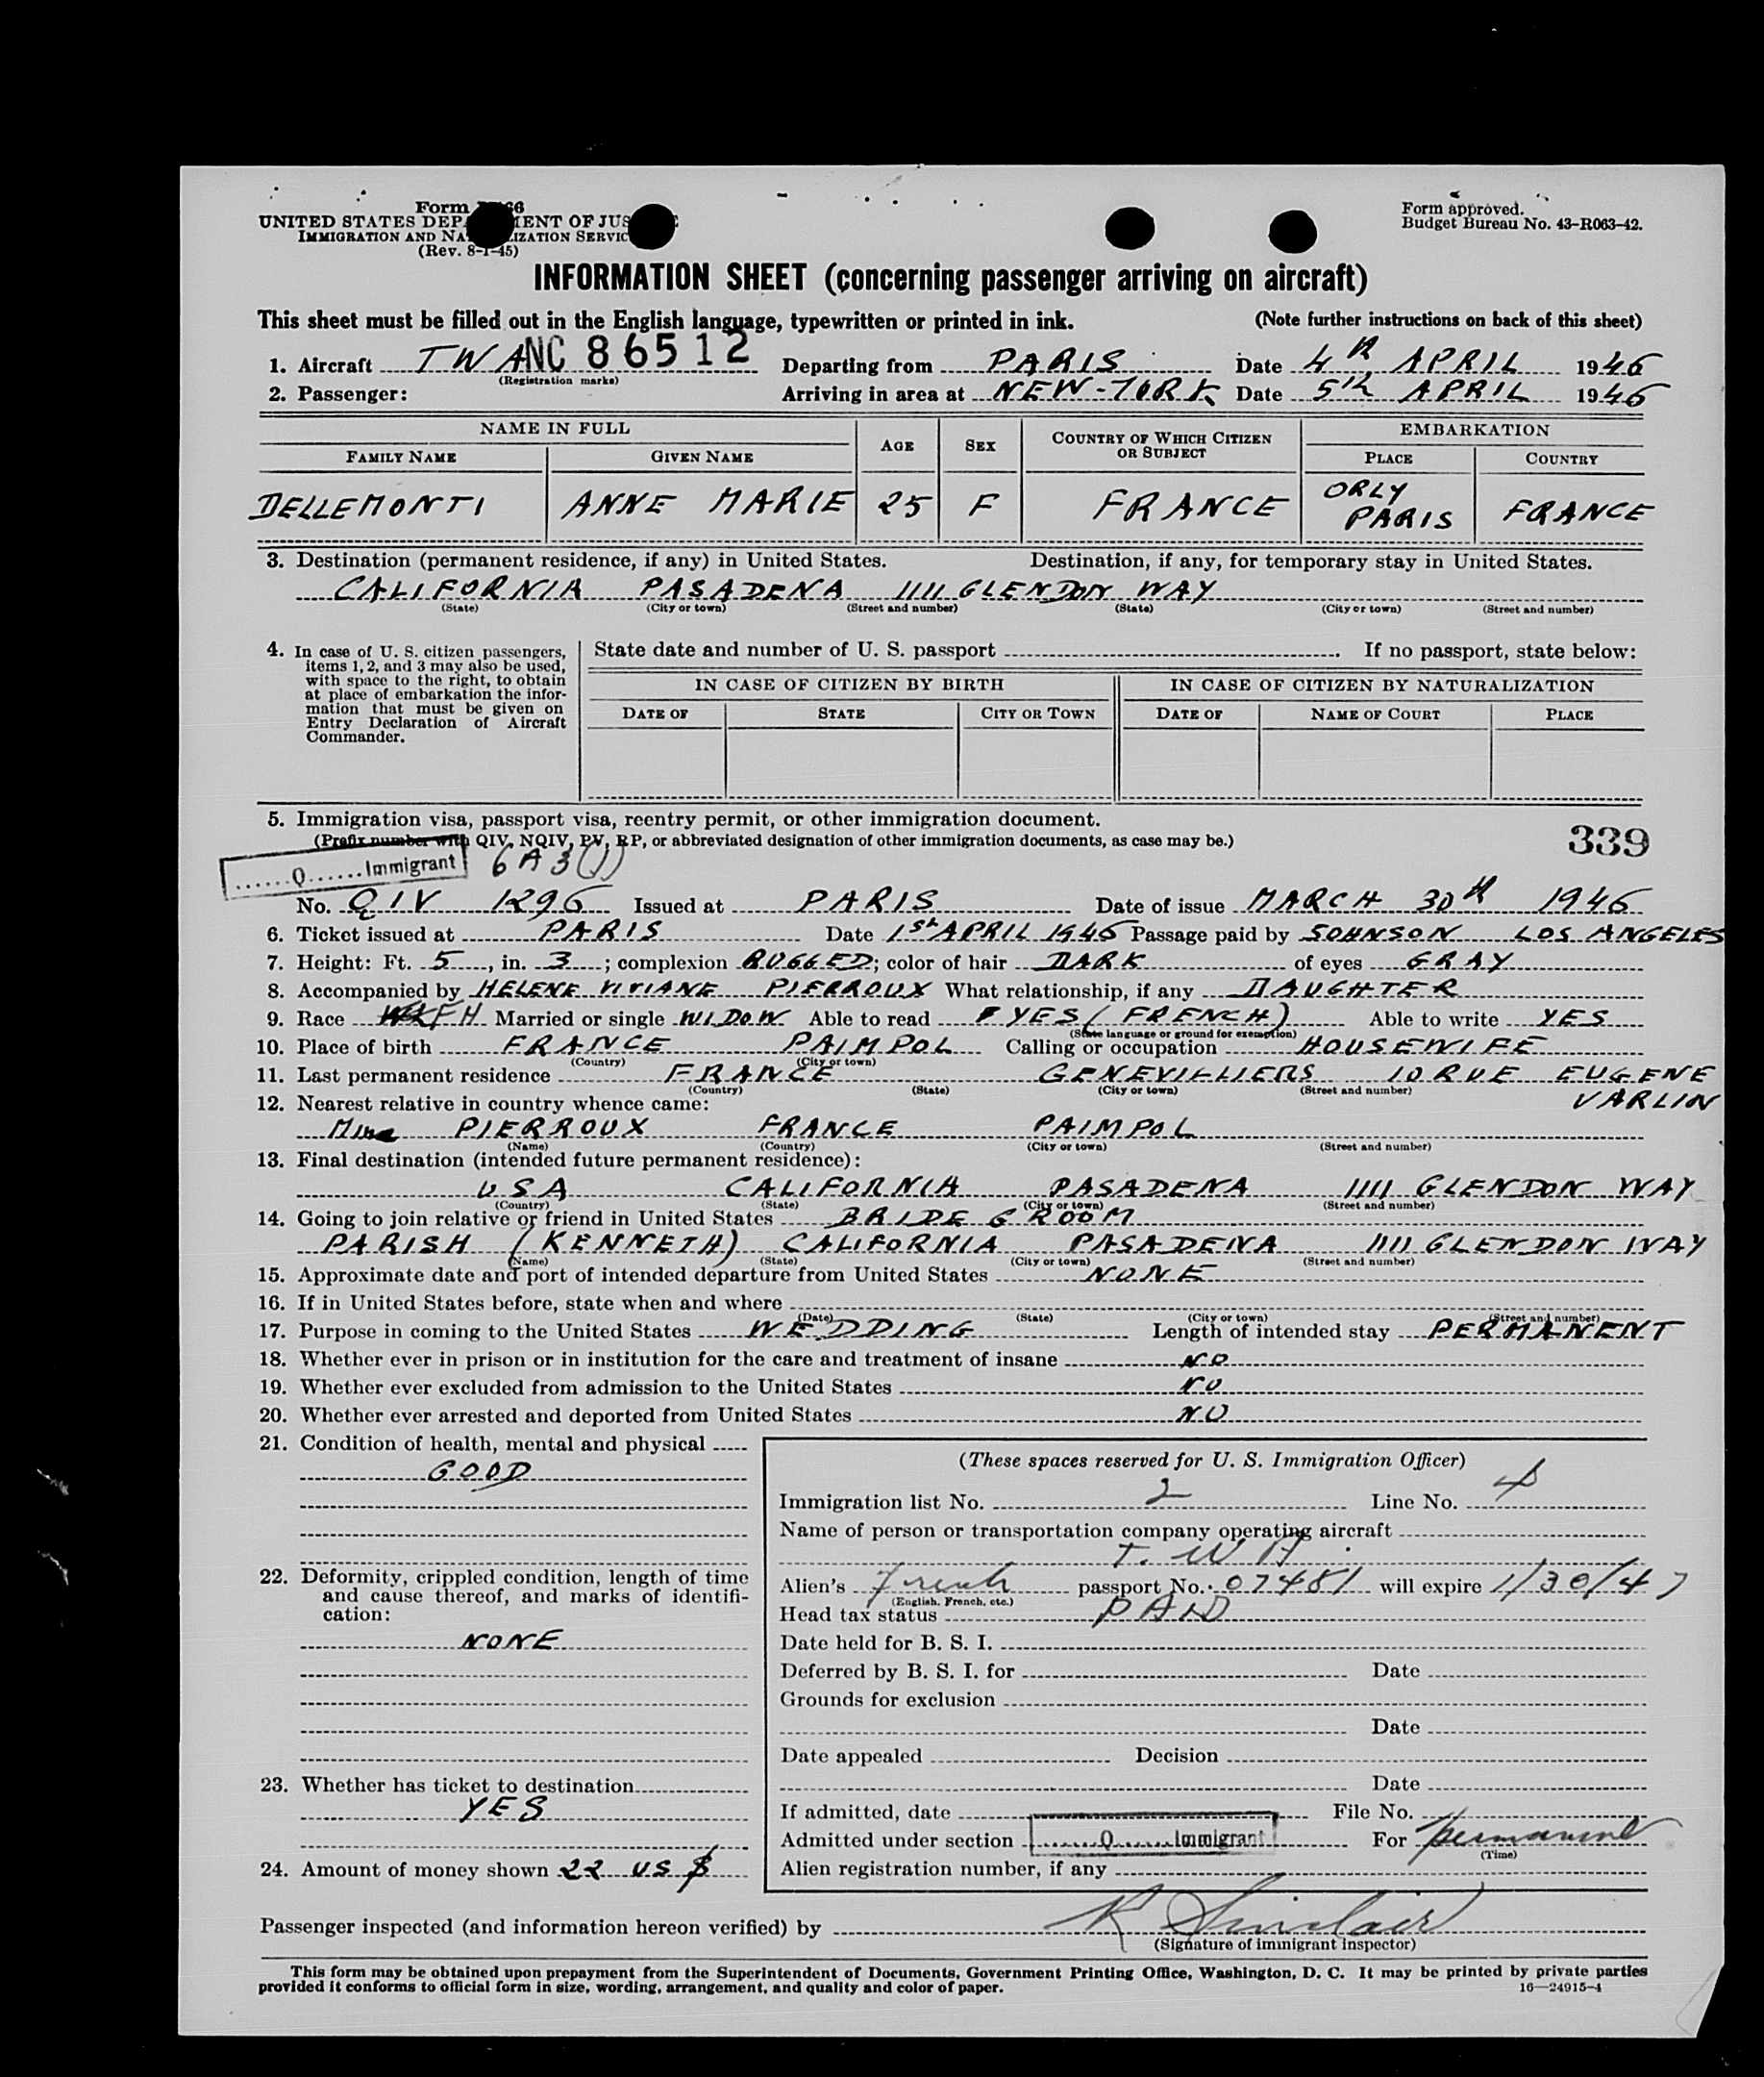 Form 66
UNITED STATES DEPA MENT OF JUS
IMMIGRATION AND NA IZATION SERVIC
(Rev. 8-1-45)
Form approved.
Budget Bureau No. 43-R063-42.
INFORMATION SHEET (concerning passenger arriving on aircraft)
This sheet must be filled out in the English language, typewritten or printed in ink. (Note further instructions on back of this sheet)
1. Aircraft TWA NC 86512 Departing from PARIS Date 4th APRIL 1946
(Registration marks)
2. Passenger: Arriving in area at NEW-YORK Date 5th APRIL 1946
NAME IN FULL AGE SEX COUNTRY OF WHICH CITIZEN OR SUBJECT EMBARKATION
FAMILY NAME GIVEN NAME PLACE COUNTRY
DELLEMONTI ANNE MARIE 25 F FRANCE ORLY PARIS FRANCE
3. Destination (permanent residence, if any) in United States. Destination, if any, for temporary stay in United States.
CALIFORNIA PASADENA 1111 GLENDON WAY
(State) (City or town) (Street and number) (State) (City or town) (Street and number)
4. In case of U. S. citizen passengers, items 1, 2, and 3 may also be used, with space to the right, to obtain at place of embarkation the information that must be given on Entry Declaration of Aircraft Commander.
State date and number of U. S. passport If no passport, state below:
IN CASE OF CITIZEN BY BIRTH IN CASE OF CITIZEN BY NATURALIZATION
DATE OF STATE CITY OR TOWN DATE OF NAME OF COURT PLACE
5. Immigration visa, passport visa, reentry permit, or other immigration document.
(Prefix number with QIV, NQIV, PV, RP, or abbreviated designation of other immigration documents, as case may be.)
339
Q Immigrant 6A3(1)
No. QIV 1296 Issued at PARIS Date of issue MARCH 30th 1946
6. Ticket issued at PARIS Date 1st APRIL 1946 Passage paid by SOHNSON LOS ANGELES
7. Height: Ft. 5, in. 3; complexion RUGGED; color of hair DARK of eyes GRAY
8. Accompanied by HELENE VIVIANE PIERROUX What relationship, if any DAUGHTER
9. Race FH Married or single WIDOW Able to read YES (FRENCH) Able to write YES
(State language or ground for exemption)
10. Place of birth FRANCE PAIMPOL Calling or occupation HOUSEWIFE
(Country) (City or town)
11. Last permanent residence FRANCE GENEVILLIERS 10 RUE EUGENE
(Country) (State) (City or town) (Street and number)
VARLIN
12. Nearest relative in country whence came:
Mme PIERROUX FRANCE PAIMPOL
(Name) (Country) (City or town) (Street and number)
13. Final destination (intended future permanent residence):
USA CALIFORNIA PASADENA 1111 GLENDON WAY
(Country) (State) (City or town) (Street and number)
14. Going to join relative or friend in United States BRIDE GROOM
PARISH (KENNETH) CALIFORNIA PASADENA 1111 GLENDON WAY
(Name) (State) (City or town) (Street and number)
15. Approximate date and port of intended departure from United States NONE
16. If in United States before, state when and where
(Date) (State) (City or town) (Street and number)
17. Purpose in coming to the United States WEDDING Length of intended stay PERMANENT
18. Whether ever in prison or in institution for the care and treatment of insane NO
19. Whether ever excluded from admission to the United States NO
20. Whether ever arrested and deported from United States NO
21. Condition of health, mental and physical
GOOD
22. Deformity, crippled condition, length of time and cause thereof, and marks of identification:
NONE
23. Whether has ticket to destination
YES
24. Amount of money shown 22 US $
(These spaces reserved for U. S. Immigration Officer)
Immigration list No. 2 Line No. 4
Name of person or transportation company operating aircraft
T. W A.
Alien's French passport No. 07481 will expire 1/30/47
(English, French, etc.)
Head tax status PAID
Date held for B. S. I.
Deferred by B. S. I. for Date
Grounds for exclusion
Date
Date appealed Decision
Date
If admitted, date File No.
Admitted under section Q Immigrant For permanent
(Time)
Alien registration number, if any
Passenger inspected (and information hereon verified) by R Sinclair
(Signature of immigrant inspector)
This form may be obtained upon prepayment from the Superintendent of Documents, Government Printing Office, Washington, D. C. It may be printed by private parties
provided it conforms to official form in size, wording, arrangement, and quality and color of paper. 16—24915-4